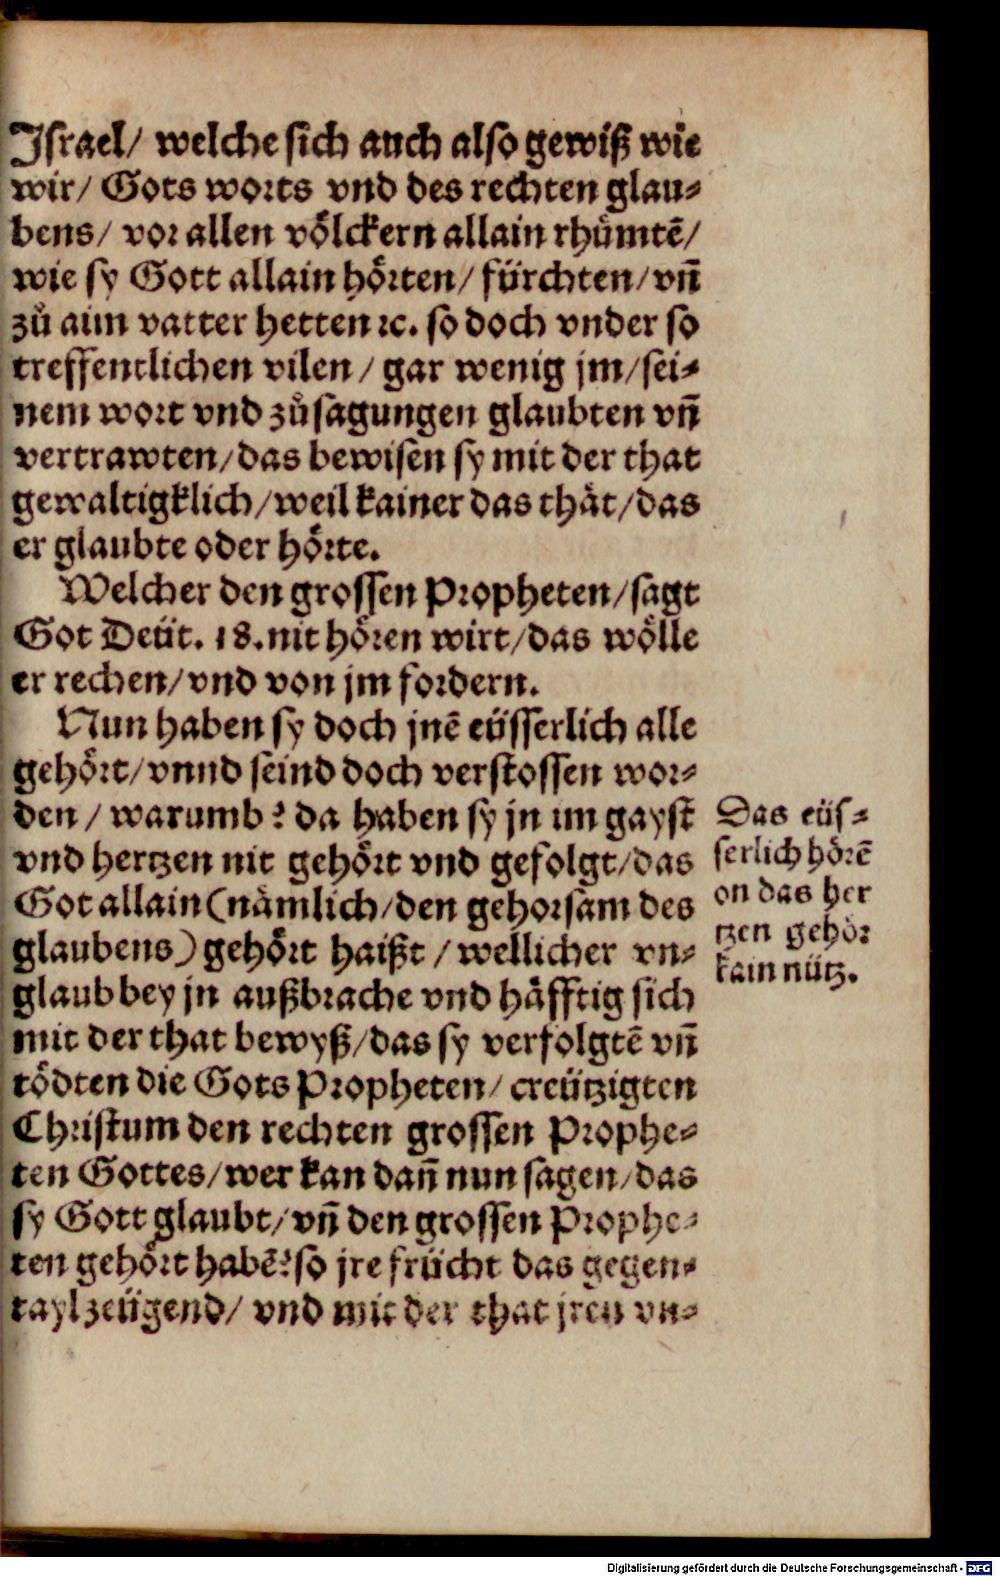 Israel/ welche sich auch also gewiß wie
wir/ Gots worts vnd des rechten glau⸗
bens/ vor allen völckern allain rhümtē/
wie sy Gott allain hörten/ fürchten/ vn̄
zů ain vatter hetten ꝛc. so doch vnder so
treffentlichen vilen/ gar wenig jm/ sei⸗
nem wort vnd zůsagungen glaubten vn̄
vertrawten/ das bewisen sy mit der that
gewaltigklich/ weil kainer das thät/ das
er glaubte oder hörte.
Welcher den grossen Propheten/ sagt
Got Deüt. 18. nit hören wirt/ das wölle
er rechen/ vnd von jm fordern.
Nun haben sy doch jnē eüsserlich alle
gehört/ vnnd seind doch verstossen wor⸗
den/ warumb? da haben sy jn im gayst
vnd hertzen nit gehört vnd gefolgt/ das
Got allain (nämlich/ den gehorsam des
glaubens) gehört haißt/ wellicher vn⸗
glaub bey jn außbrache vnd häfftig sich
mit der that bewyß/ das sy verfolgtē vn̄
tödten die Gots Propheten/ creützigten
Christum den rechten grossen Prophe⸗
ten Gottes/ wer kan dan̄ nun sagen/ das
sy Gott glaubt/ vn̄ den grossen Prophe⸗
ten gehört habē? so jre frücht das gegen⸗
tayl zeügend/ vnd mit der that jren vn⸗
Das eüs⸗
serlich hörē
on das her
tzen gehör
kain nütz.
Digitalisierung gefördert durch die Deutsche Forschungsgemeinschaft - DFG